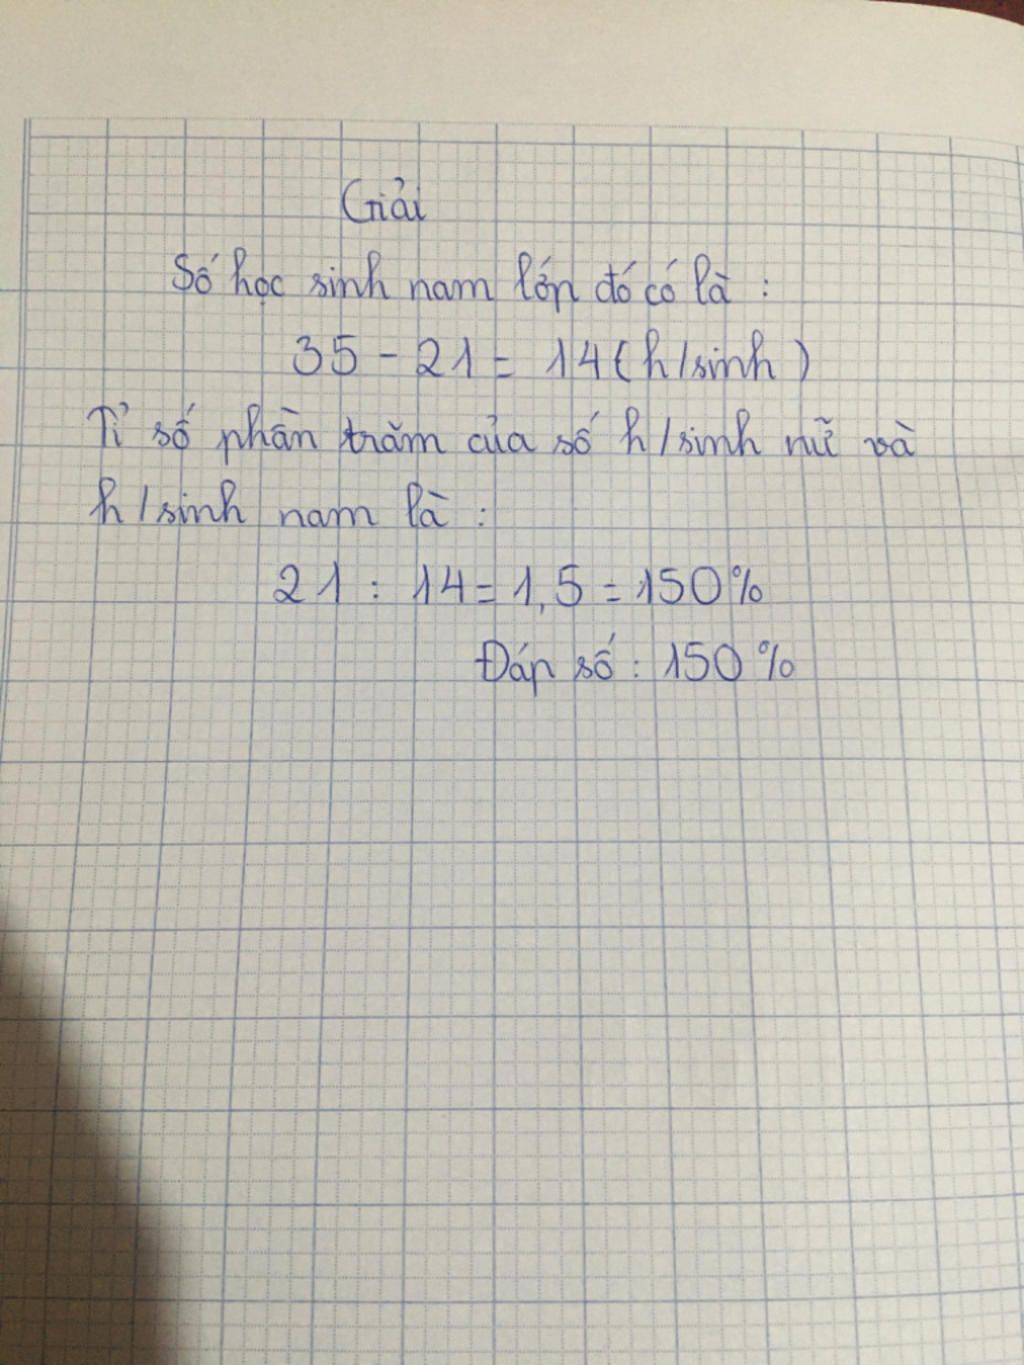 Giải
Số học sinh nam lớp đó có là :
35 - 21 = 14 (h/sinh)
Tỉ số phần trăm của số h/sinh nữ và
h/sinh nam là :
21 : 14 = 1,5 = 150%
Đáp số : 150%